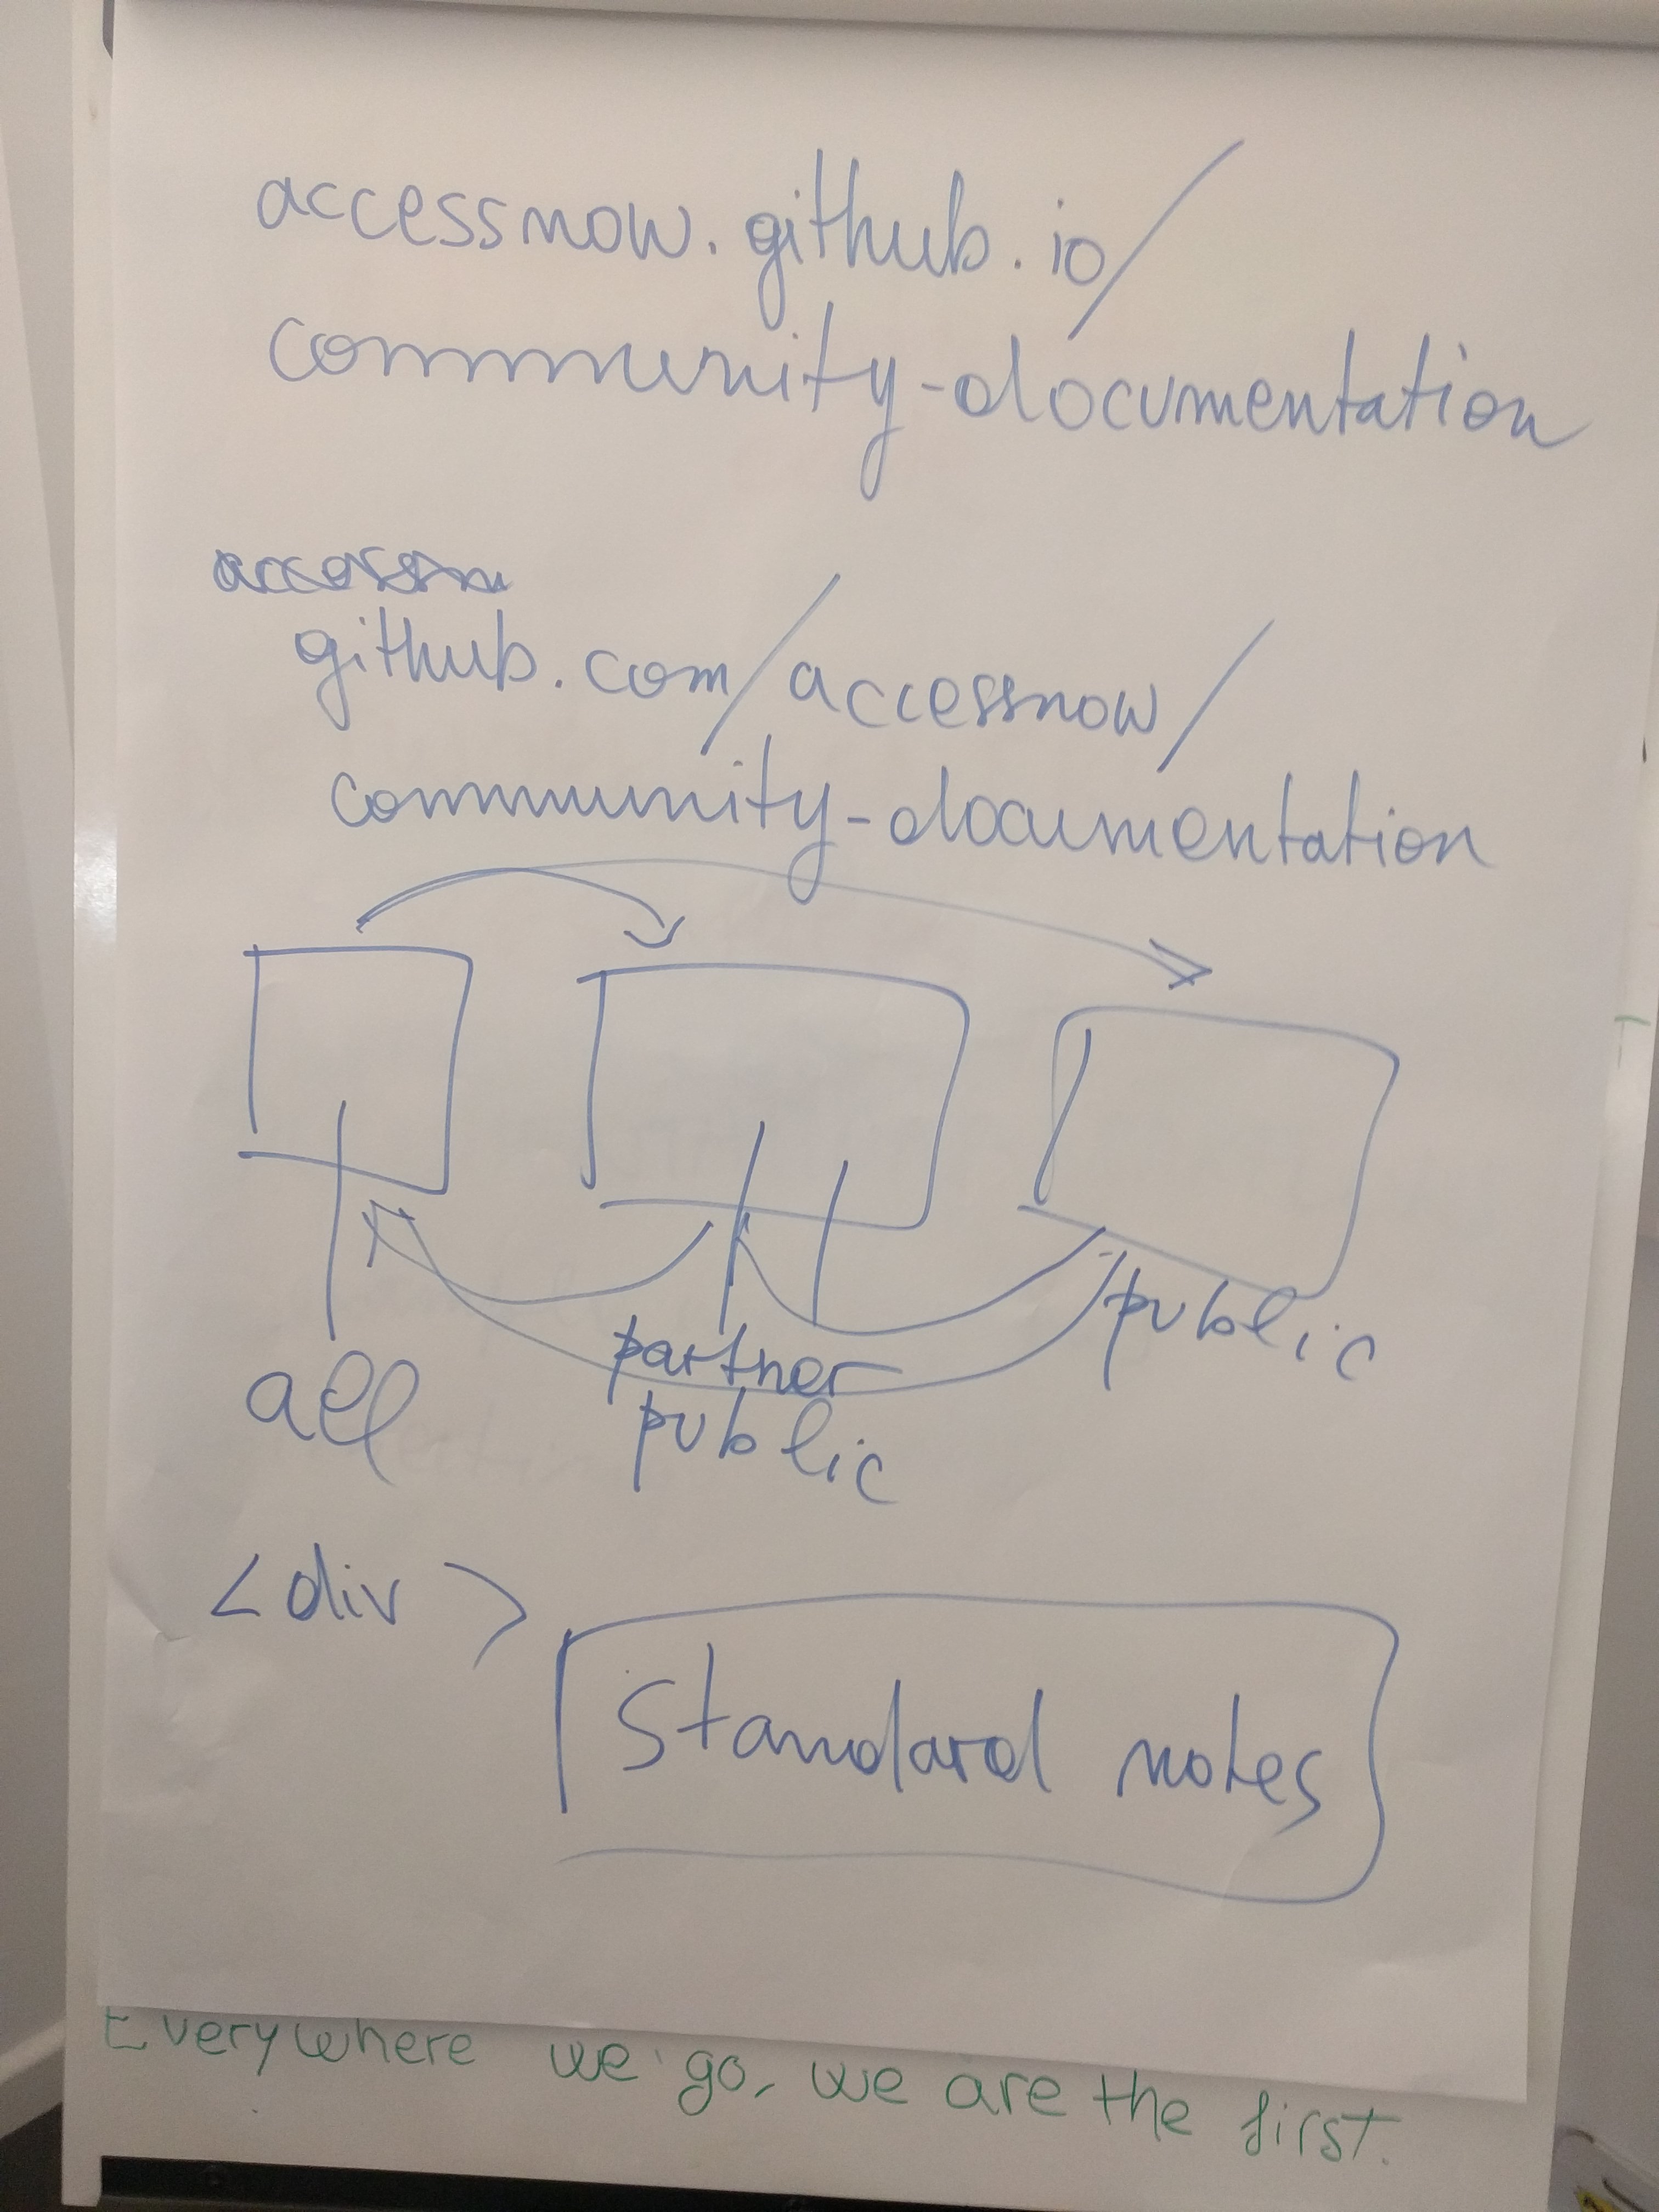 accessnow.github.io/
community-documentation
accessn
github.com/accessnow/
community-documentation
all
partner
public
public
<div>
Standard notes
Everywhere we go, we are the first.